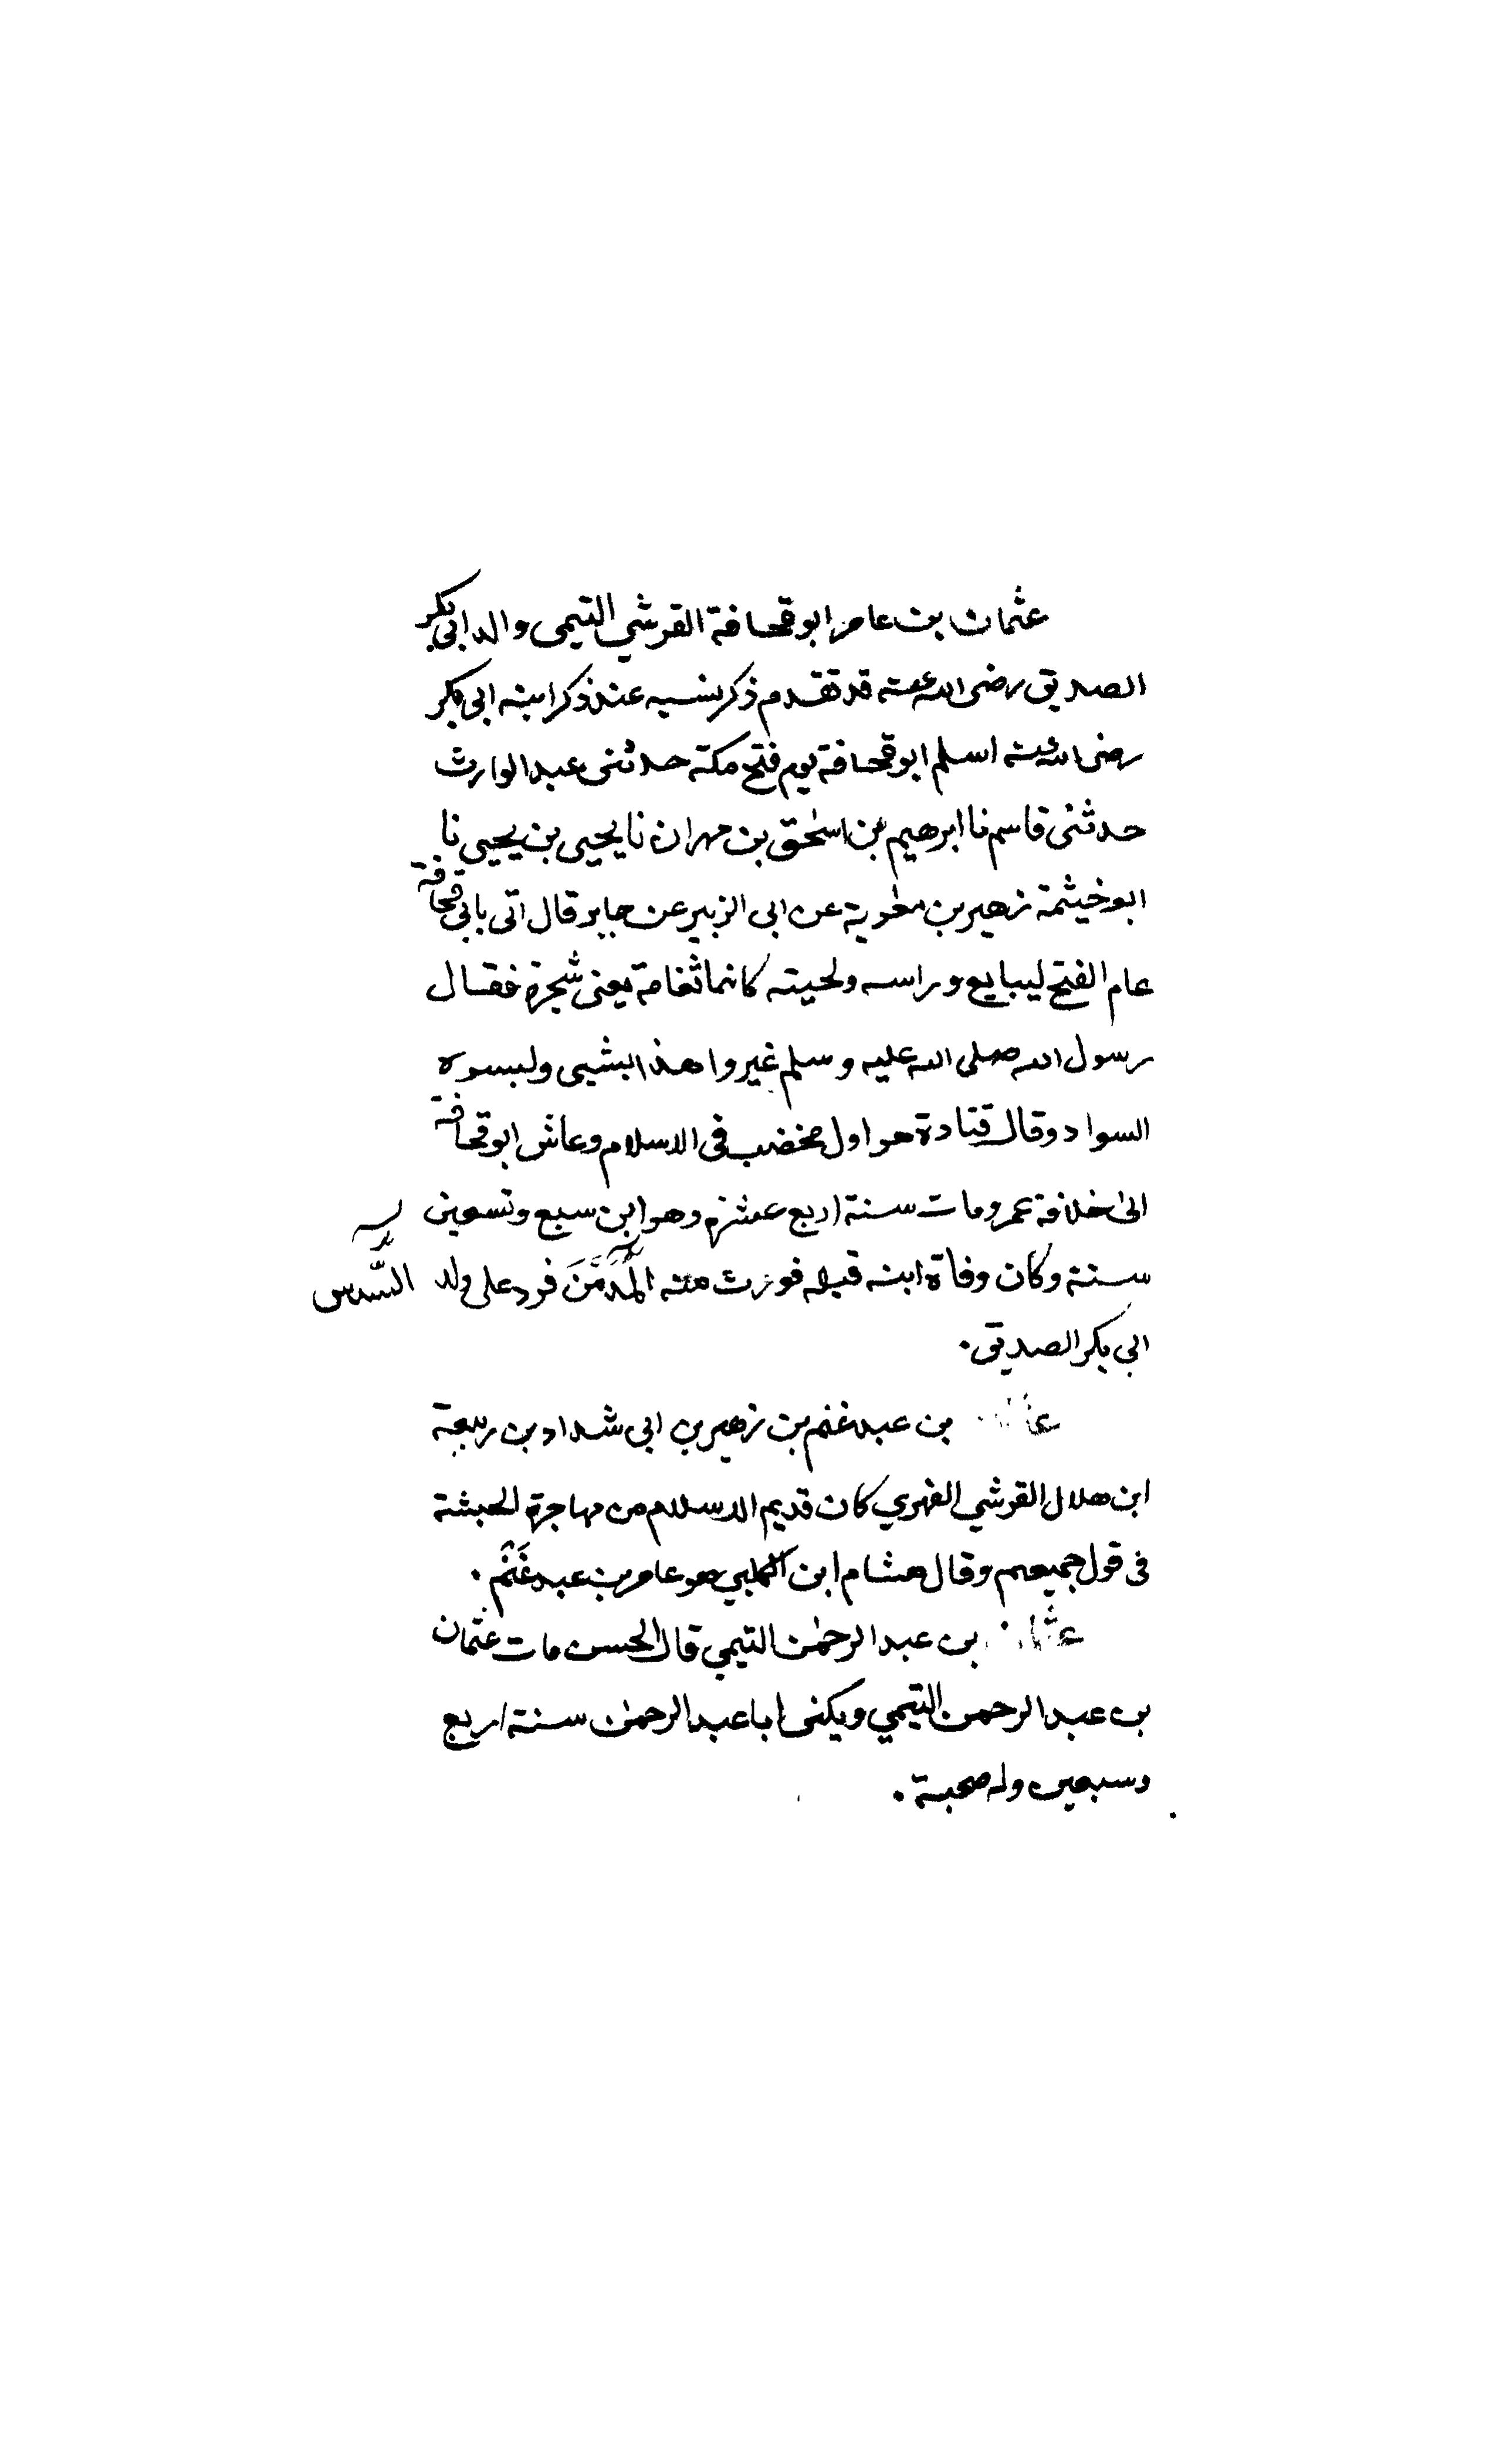 عثمان بن عامر ابو قحافة القرشي التيمي والد ابي بكر
الصديق رضى الله عنه قد تقدم ذكر نسبه عند ذكر ابنه ابى بكر
رضى الله عنه اسلم ابو قحافة يوم فتح مكة حدثنى عبد الوارث
حدثنى قاسم نا ابرهيم بن اسحٰق بن مهران نا يحيى بن يحيى نا
ابو خيثمة زهير بن معٰوية عن ابى الزبير عن جابر قال اتى بابى قحافة
عام الفتح ليبايع وراسه ولحيته كانما ثغامة يعنى شجرة فقال
رسول الله صلى الله عليه وسلم غيروا هذا بشيى ولبسوه
السواد وقال قتادة هو اول مخضب فى الاسلام وعاش ابو قحافة
الى خلافة عمر ومات سنة اربع عشرة وهو ابن سبع وتسعين
سنة وكان وفاة ابنه قبله فورث منه فرد على ولد السُّدس
ابى بكر الصديق .
بن عبد غنم بن زهير بن ابى شداد بن ربيعة
ابن هلال القرشي الفهري كان قديم الاسلام من مهاجرة الحبشة
فى قول جميعهم وقال هشام ابن الكلبي هو عامر بن عبد غَنْم .
عثمان بن عبد الرحمٰن التيمي قال الحسن مات عثمان
بن عبد الرحمن التيمي ويكنى ابا عبد الرحمٰن سنة اربع
وسبعين وله صحبة .